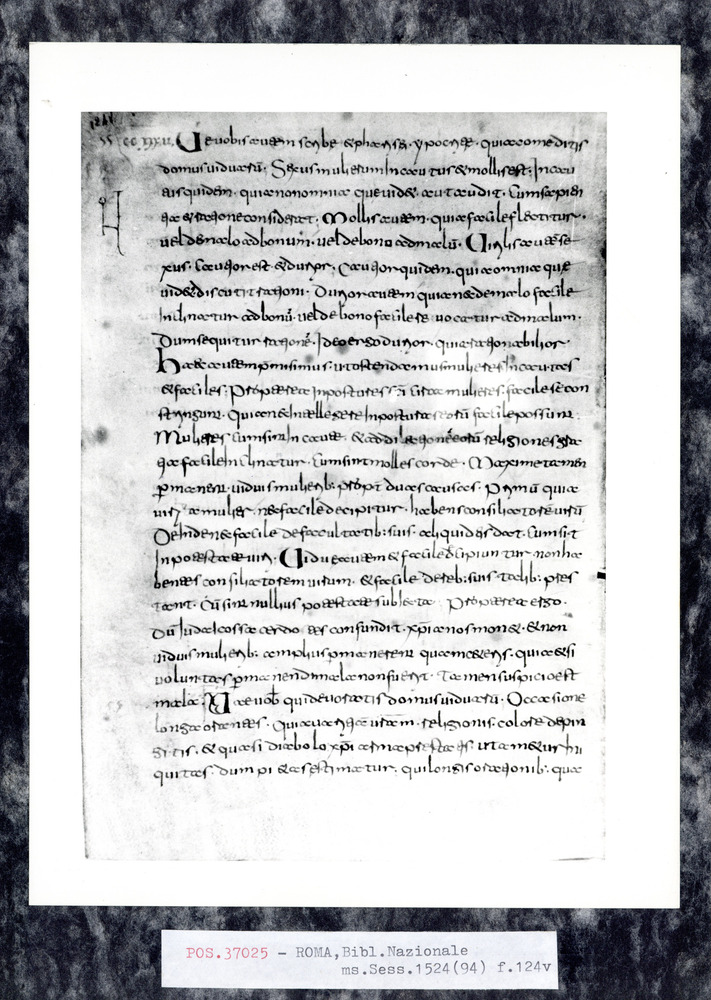 Ue vobis autem scribe & pharisei ypocrite quia comeditis
domus viduarū. Sexus mulierum Incautus & mollis est. Incau
tus quidem. quia non omnia que vid&. aut audit. Cum sapien
tia & ratione considerat. Mollis autem. quia facile flectitur.
vel de malo ad bonum. vel de bono ad malū. Uirilis autem se
xus. Cautior est. & durior. Cautior quidem. quia omnia que
vid& discutit rationi. Durior autem quia nec de malo facile
Inclinatur ad bonū. vel de bono facile revocatur ad malum.
Dum sequitur rationē. Ideo ergo durior. quia rationabilior.
Haec autem premisimus. ut ostendamus mulieres Incautas
& faciles. Propterea Inpostures
stringunt. Quia nec Intellegere Inposturas eorū facile possunt.
Mulieres cum sint Incaute. religiones gra
tia facile Inclinatur. Cum sint molles corde. Maxime tamen
permanent. viduis mulierib; propt duas causas. Primū quia
mulier. ne facile decipitur. habens consiliatorē virū
Deinde nec facile de facultatib; suis. aliquid eis dat. Cum sit
In potestate viri. Uidue autem & facile decipiuntur non ha
bentes consiliatorem virum. & facile de reb; suis talib; pres
tant. Cū sint nullius potestate subiecte. Propterea ergo.
Dū Iudaicos sacerdotes confundit. xpianos mon&. & non
viduis mulierib; amplius permanerent quam ceteris. quia etsi
voluntas permanendi mala non fuerit. Tamen suspicio est
mala. Uae vob qui devoratis domus viduarū. Occasione
longa orantes. Quia varietate vitam. religionis colore depin
gitis. & quasi diabolo xpi arma prestatis. ut am&ur Ini
quitas. dum pi&as estimatur. qui longis orationib; qua
POS.37025 - ROMA,Bibl.Nazionale
ms.Sess.1524(94) f.124v